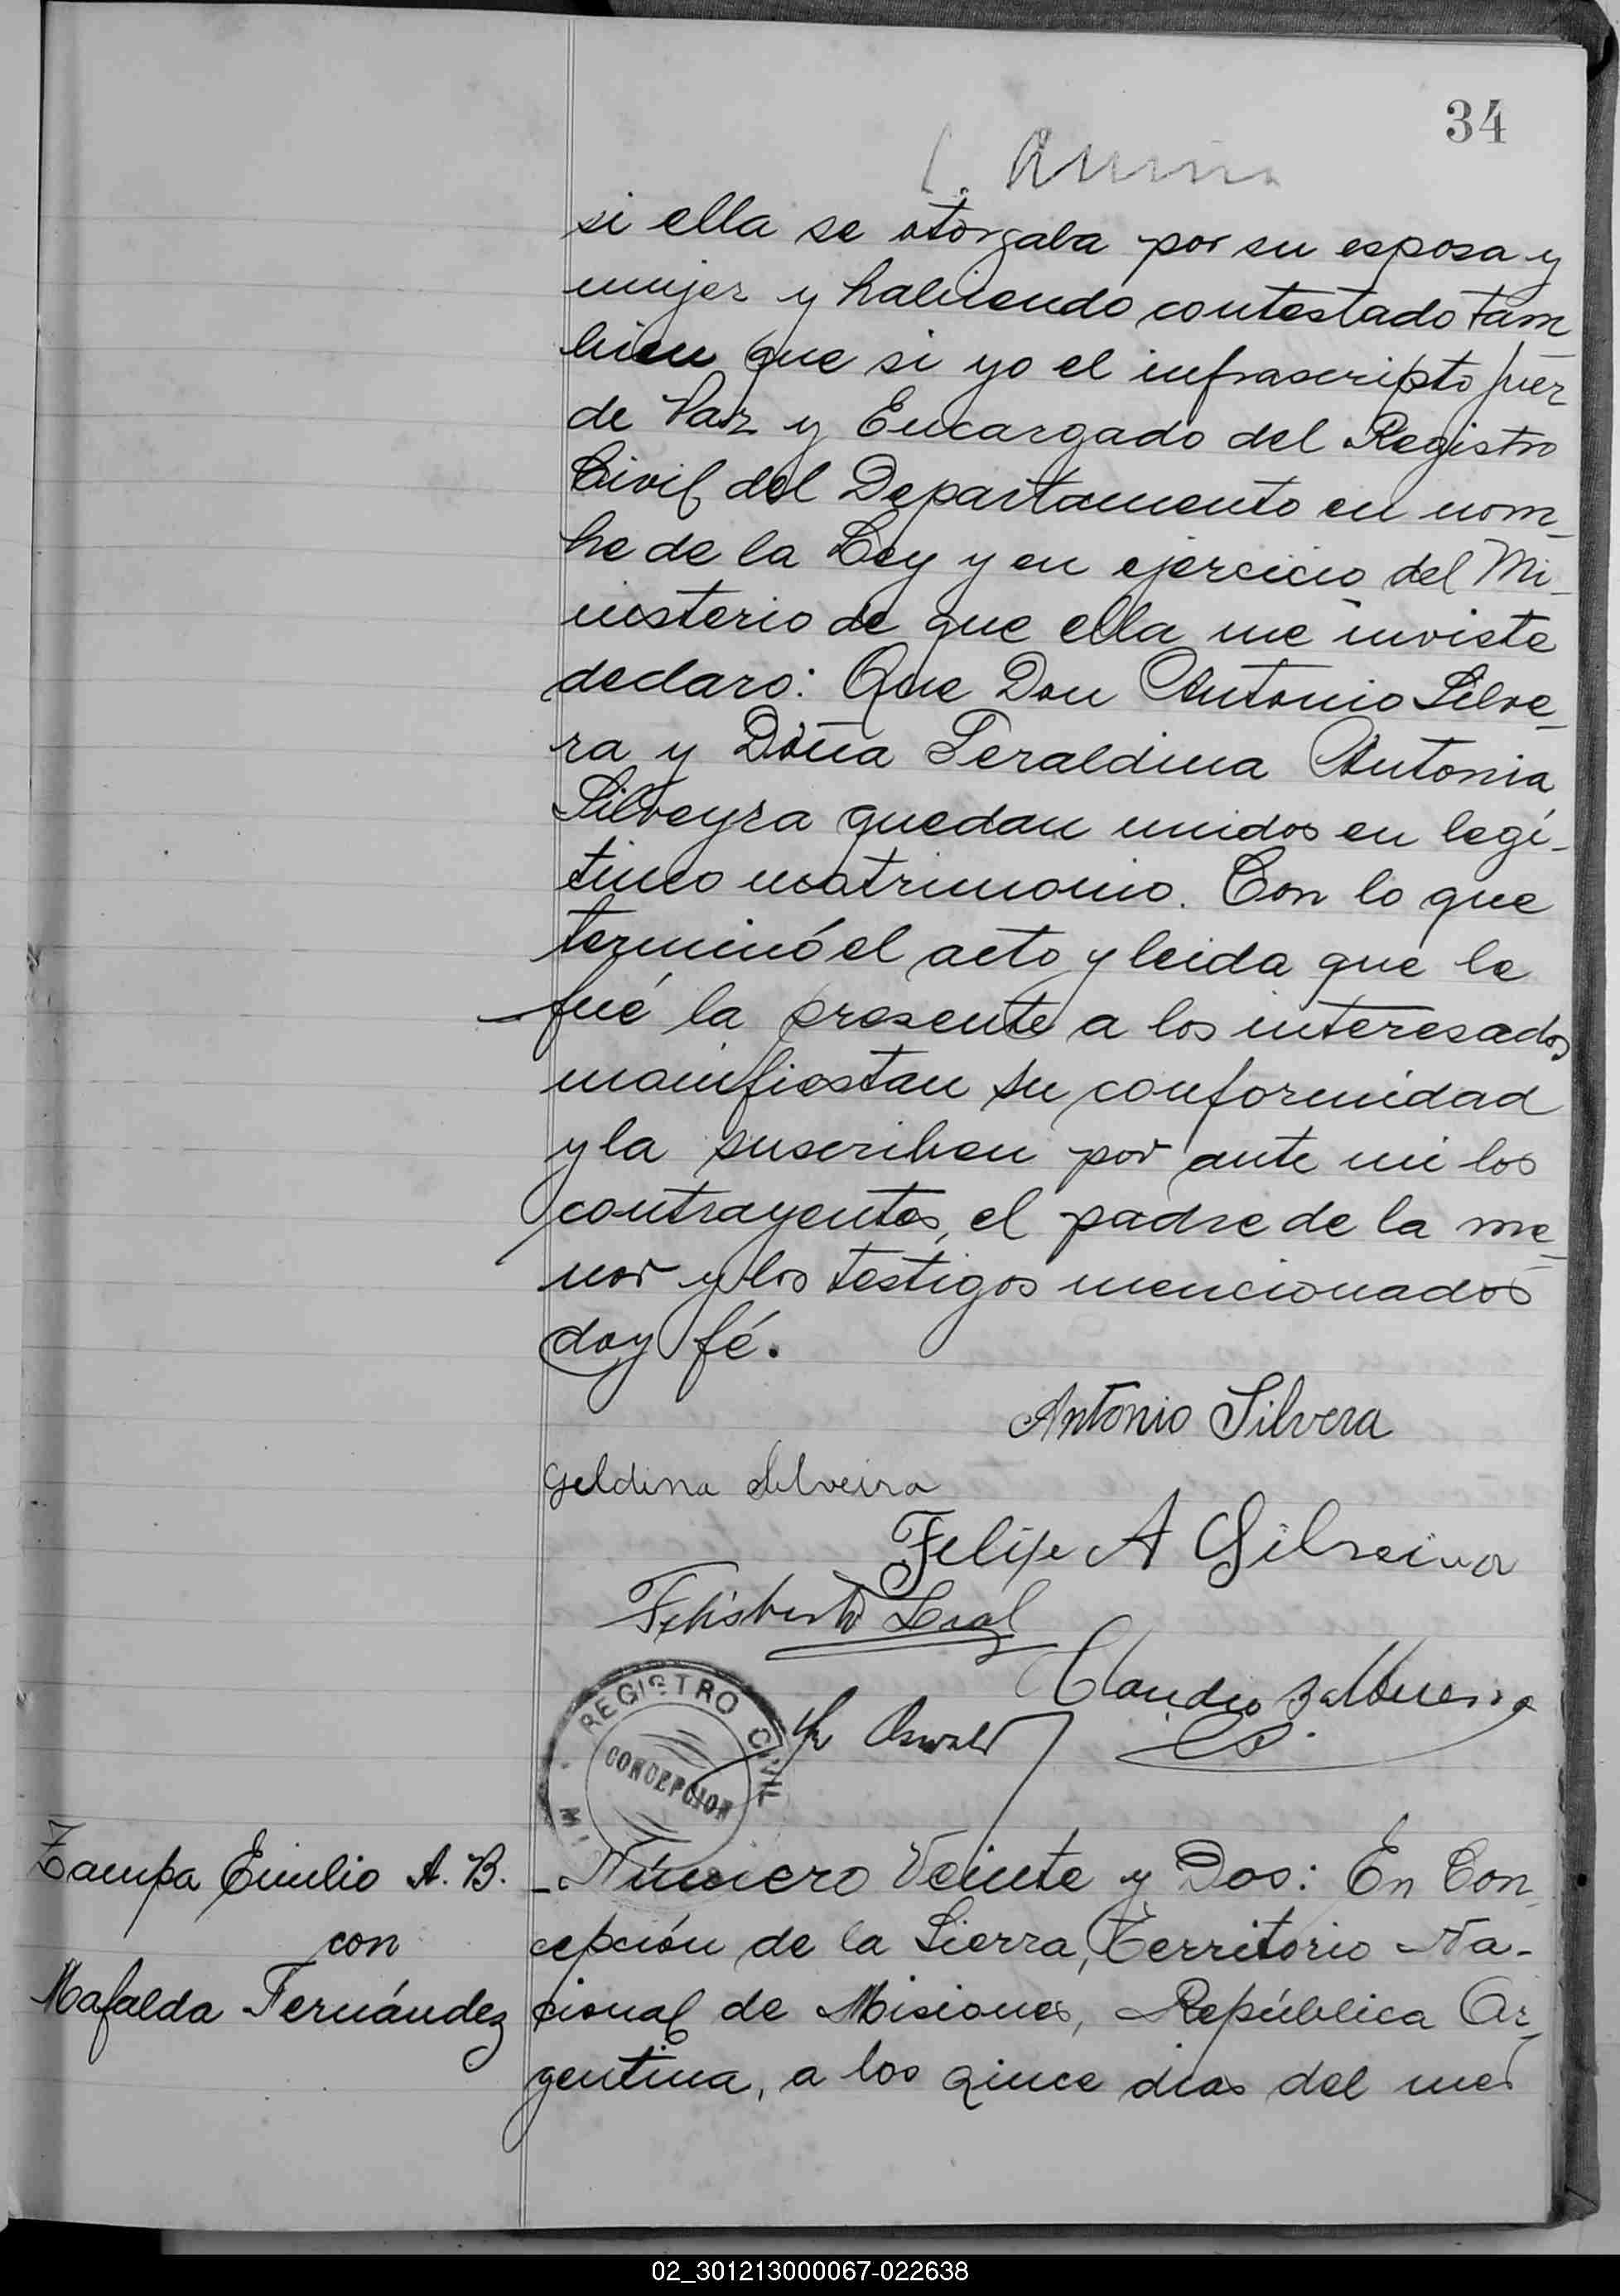 34
si ella se otorgaba por su esposa y
mujer y habiendo contestado tam
bien que si yo el infrascripto Juez
de Paz y Encargado del Registro
Civil del Departamento en nom-
bre de la Ley y en ejercicio del Mi-
nisterio de que ella me inviste
declaro: Que Don Antonio Silve-
ra y Doña Geraldina Antonia
Silveyra quedan unidos en legí-
timo matrimonio. Con lo que
terminó el acto y leida que le
fué la presente a los interesados
manifiestan su conformidad
y la suscriben por ante mi los
contrayentes, el padre de la me-
nor y los testigos mencionados
doy fé.
Antonio Silvera
Geldina Silveira
Felipe A Silveira
Felisberto Leal
Claudio Balbuena
Oswald
REGISTRO CIVIL
CONCEPCION
Zampa Emilio A. B.
con
Mafalda Fernández
-Número Veinte y Dos: En Con-
cepción de la Sierra, Territorio Na-
cional de Misiones, República Ar-
gentina, a los qince dias del mes
02_301213000067-022638